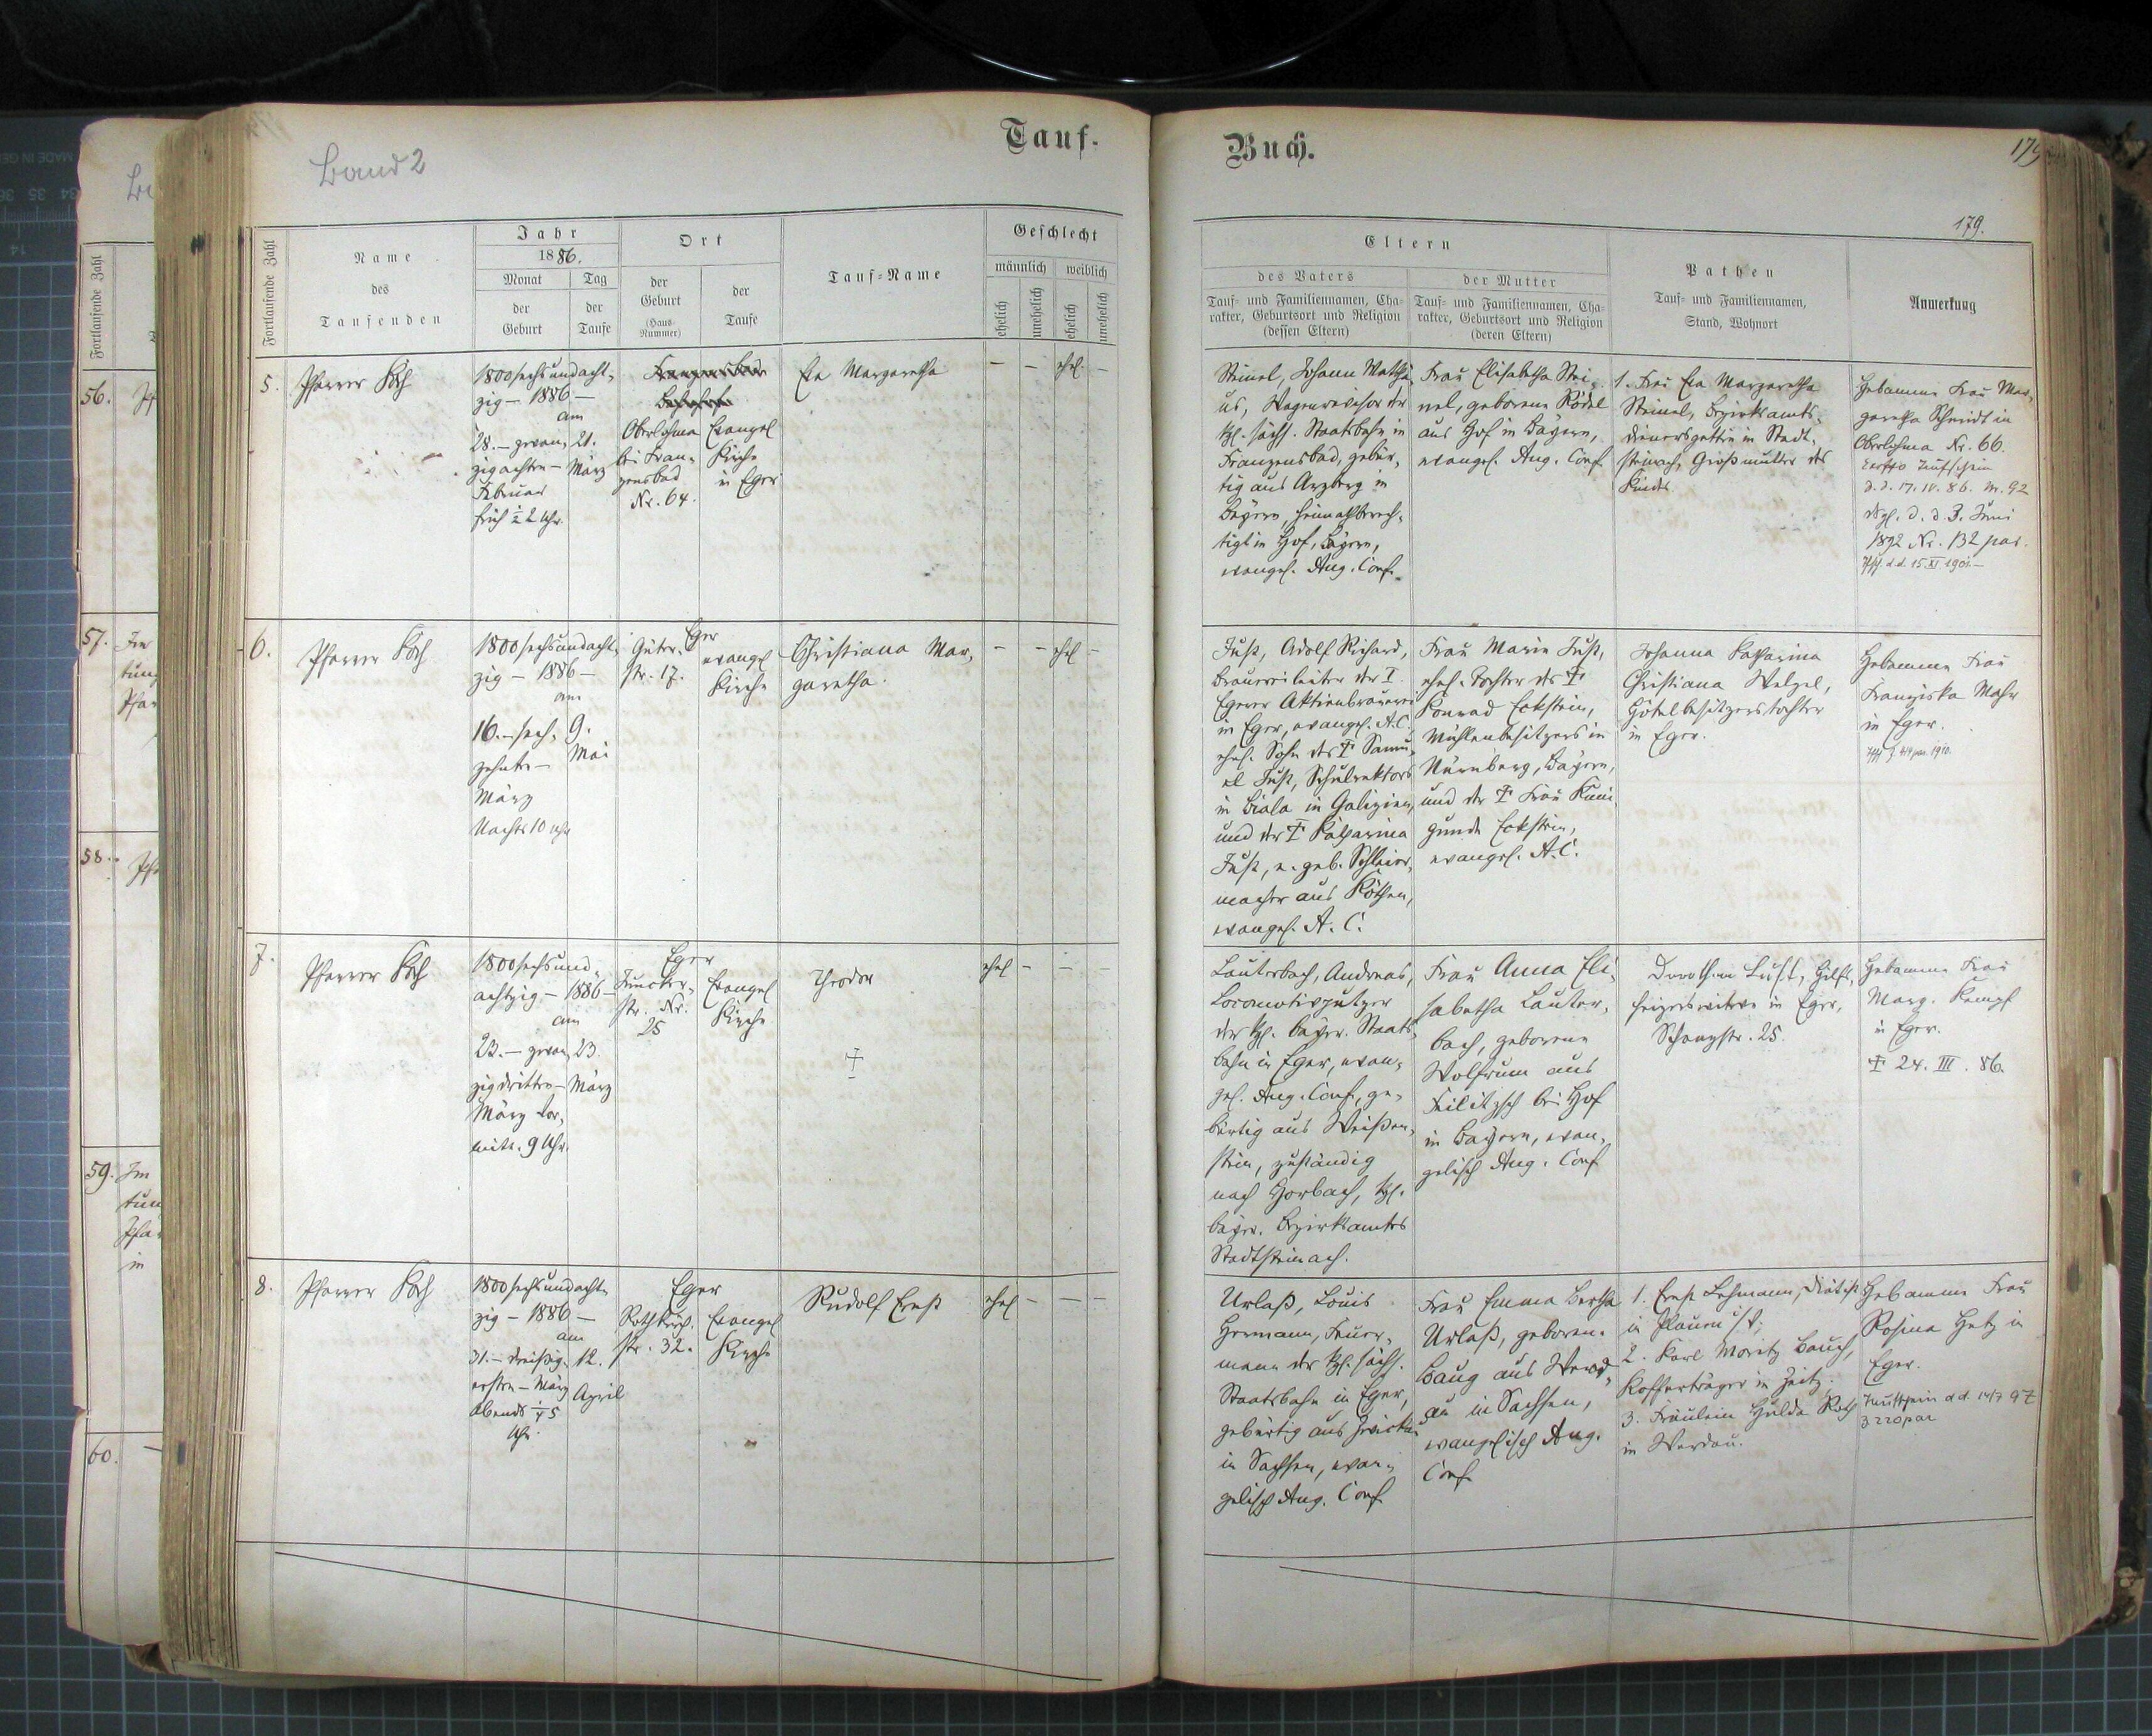 Band 2
Tauf-
Buch.
179
179.
Fortlaufende Zahl
Fortlaufende Zahl
Name
des
Taufenden
Jahr
1886.
Monat
der
Geburt
Tag
der
Taufe
Ort
der
Geburt
(Haus-
Nummer)
der
Taufe
Tauf-Name
Geschlecht
männlich
weiblich
ehelich
unehelich
ehelich
unehelich
Eltern
des Vaters
Tauf- und Familiennamen, Cha-
rakter, Geburtsort und Religion
(dessen Eltern)
der Mutter
Tauf- und Familiennamen, Cha-
rakter, Geburtsort und Religion
(deren Eltern)
Pathen
Tauf- und Familiennamen,
Stand, Wohnort
Anmerkung
56.
57.
58.
59.
60.
5.
Pfarrer Koch
1800 sechsundacht-
zig – 1886 –
am
28. – zwan-
zigachten –
Februar
früh ½ 2 Uhr.
21.
März
Franzensbad
Bahnhof
Oberlohma
bei Fran-
zensbad
Nr. 64.
Evangel
Kirche
in Eger
Eva Margaretha
– – ehel. –
Steinel, Johann Matthä-
us, Wagenrevisor der
kgl. sächs. Staatsbahn in
Franzensbad, gebür-
tig aus Arzberg in
Bayern, heimathberech-
tigt in Hof, Bayern,
evangel. Aug. Conf.
Frau Elisabetha Stei-
nel, geborene Rödel
aus Hof in Bayern,
evangel. Aug. Conf.
1. Frau Eva Margaretha
Steinel, Bezirksamts-
dienersgattin in Stadt-
steinach, Großmutter des
Kindes
Hebamme Frau Mar-
garetha Schmidt in
Oberlohma Nr. 66.
d. d. 17. IV. 86. N. 92
d. d. 3. Juni
1892 Nr. 132 par.
d. d. 15. XI. 1901. –
6.
Pfarrer Koch
1800 sechsundacht-
zig – 1886 –
am
16. – sech-
zehnte –
März
Nachts 10 Uhr
9.
Mai
Eger
Güter-
str. 17.
evangl
Kirche
Christiana Mar-
garetha.
– – ehel –
Just, Adolf Richard,
Brauereileiter der I.
Egerer Aktienbrauerei
in Eger, evangel. A. C.,
ehel. Sohn des † Samu-
el Just, Schulrektors
in Biala in Galizien,
und der † Katharina
Just, geb. Schleier-
macher aus Köthen,
evangel. A. C.
Frau Marie Just,
ehel. Tochter des †
Konrad Eckstein,
Mühlenbesitzers in
Nürnberg, Bayern,
und der † Frau Kuni-
gunde Eckstein,
evangel. A. C.
Johanna Katharina
Christiana Welzel,
Hôtelbesitzerstochter
in Eger.
Hebamme Frau
Franziska Mahr
in Eger.
7.
Pfarrer Koch
1800 sechsund-
achtzig – 1886 –
am
23. – zwan-
zigdritten –
März Vor-
mitt. 9 Uhr.
23.
März
Eger
Juncker-
str. Nr.
25
Evangel
Kirche
Theodor
†
ehel – – –
Lauterbach, Andreas,
Locomotivputzer
der kgl. bayer. Staats-
bahn in Eger, evan-
gel. Aug. Conf., ge-
bürtig aus Weißen-
stein, zuständig
nach Horbach, kgl.
bayer. Bezirksamtes
Stadtsteinach.
Frau Anna Eli-
sabetha Lauter-
bach, geborene
Wolfrum aus
Feilitzsch bei Hof
in Bayern, evan-
gelisch Aug. Conf
Dorothea Luft, Hilfs-
heizerswitwe in Eger,
Schanzstr. 25.
Hebamme Frau
Marg. Kempf
in Eger.
† 24. III. 86.
8.
Pfarrer Koch
1800 sechsundacht-
zig – 1886 –
am
31. – dreißig-
ersten – März
abends ¼ 5
Uhr.
12.
April
Eger
Rothkirch-
str. 32.
Evangel
Kirche
Rudolf Ernst
ehel – – –
Urlaß, Louis
Hermann, Feuer-
mann der kgl. sächs.
Staatsbahn in Eger,
gebürtig aus Zwickau
in Sachsen, evan-
gelisch Aug. Conf
Frau Emma Bertha
Urlaß, geborene
Baug aus Werd-
au in Sachsen,
evangelisch Aug.
Conf.
1. Ernst Lehmann, Diätist
in Plauen i/V;
2. Karl Moritz Bauch,
Kofferträger in Zeitz;
3. Fräulein Hulda Roth
in Werdau.
Hebamme Frau
Rosina Hetz in
Eger.
Taufschein d. d. 14/7 97
Z 220 par